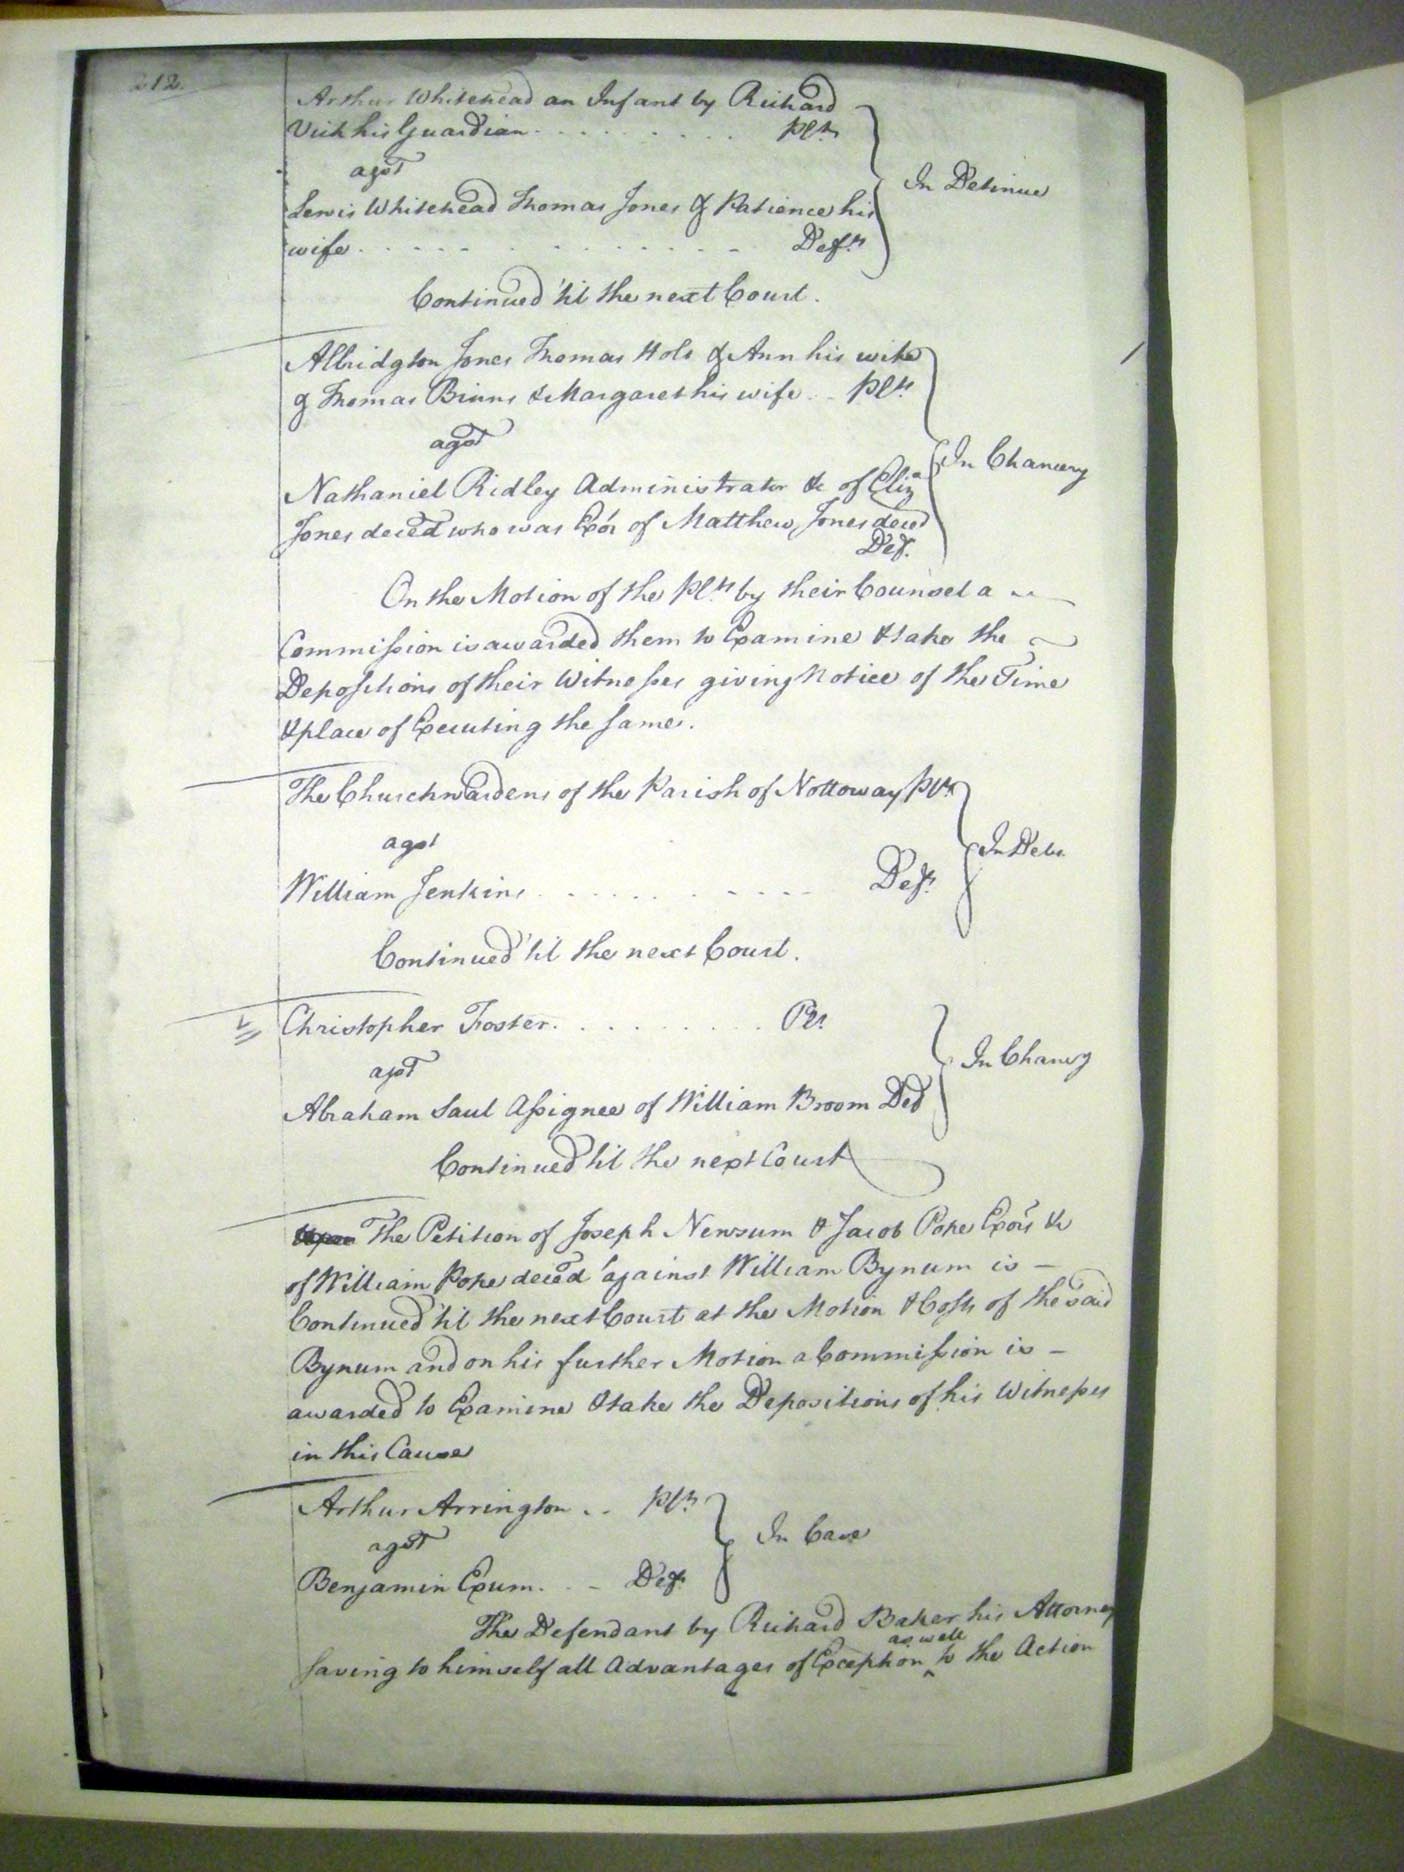 212.
Arthur Whitehead an Infant by Richard
Vick his Guardian . . . . . . . . . Plt.
agst
In Detinue
Lewis Whitehead Thomas Jones & Patience his
wife . . . . . . . . . . . . . Defts.
Continued 'til the next Court.
Albridgton Jones Thomas Holt & Ann his wife
& Thomas Binns & Margaret his wife . . Plts.
agst
In Chancery
Nathaniel Ridley Administrator &c of Eliza
Jones deced who was Exor of Matthew Jones deced
Def.
On the Motion of the Plts. by their Counsel a
Commission is awarded them to Examine & take the
Depositions of their Witnesses giving Notice of the Time
& place of Executing the same.
The Churchwardens of the Parish of Nottoway Plts.
agst
In Debt
William Jenkins . . . . . . . . . . . Deft.
Continued 'til the next Court.
Christopher Foster . . . . . . . . . Plt.
agst
In Chancery
Abraham Saul Assignee of William Broom Def
Continued 'til the next Court
Upon The Petition of Joseph Newsum & Jacob Pope Exors &c
of William Pope deced against William Bynum is –
Continued 'til the next Court at the Motion & Costs of the said
Bynum and on his further Motion a Commission is –
awarded to Examine & take the Depositions of his Witnesses
in this Cause
Arthur Arrington . . Plt.
agst
In Case
Benjamin Exum . . – Deft.
The Defendant by Richard Baker his Attorney
saving to himself all Advantages of Exception ^ as well to the Action